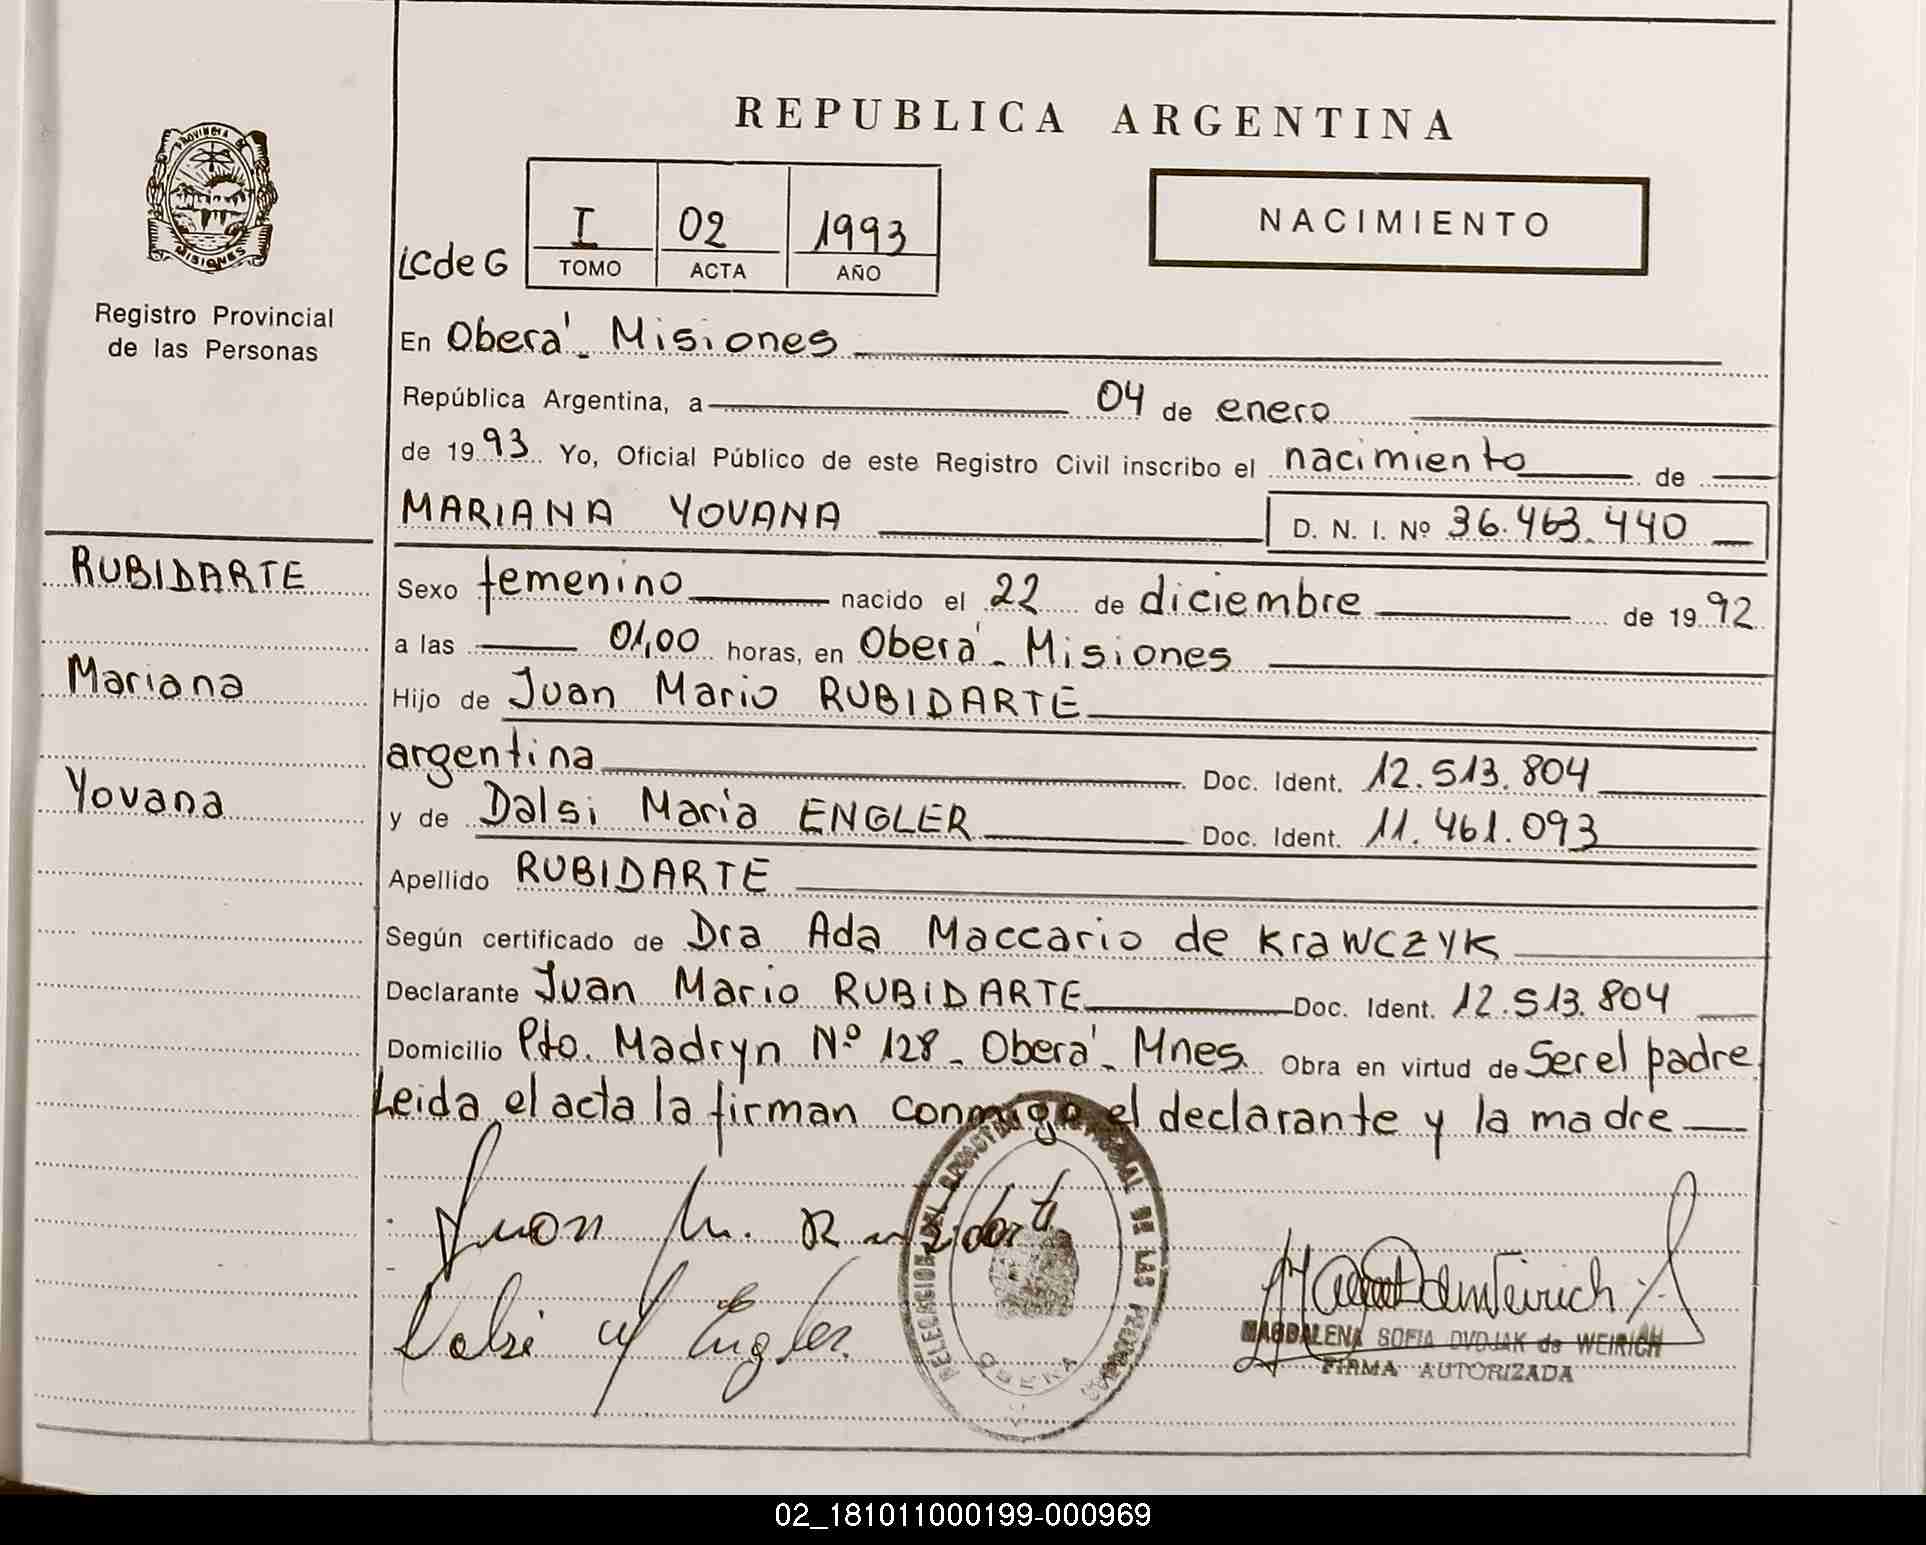 REPUBLICA ARGENTINA
PROVINCIA DE
MISIONES
Registro Provincial
de las Personas
LCdeG
I 02 1993
TOMO ACTA AÑO
NACIMIENTO
En Oberá - Misiones
República Argentina, a 04 de enero
de 1993 Yo, Oficial Público de este Registro Civil inscribo el nacimiento de
MARIANA YOVANA D. N. I. Nº 36.463.440
RUBIDARTE
Mariana
Yovana
Sexo femenino nacido el 22 de diciembre de 1992
a las 01,00 horas, en Oberá - Misiones
Hijo de Juan Mario RUBIDARTE
argentina Doc. Ident. 12.513.804
y de Dalsi María ENGLER Doc. Ident. 11.461.093
Apellido RUBIDARTE
Según certificado de Dra Ada Maccario de KRAWCZYK
Declarante Juan Mario RUBIDARTE Doc. Ident. 12.513.804
Domicilio Pto. Madryn Nº 128 - Oberá - Mnes. Obra en virtud de Ser el padre
Leida el acta la firman conmigo el declarante y la madre
Juan M. Rubidarte
Dalsi M Engler
DE LAS
OBERA
MAGDALENA SOFIA DVOJAK de WEIRICH
FIRMA AUTORIZADA
02_181011000199-000969